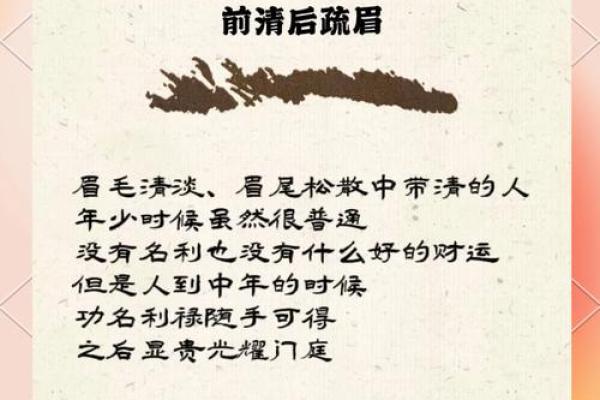 前清后疏眉
眉毛清淡、眉尾松散中带清的人
年少时候虽然很普通
没有名利也没有什么好的财运
但是人到中年的时候
功名利禄随手可得
之后显贵光耀门庭